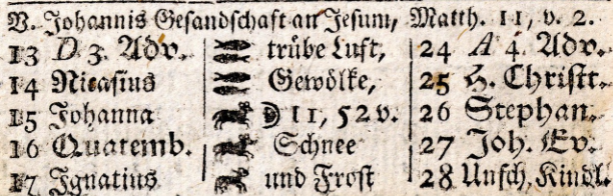 V. Johannis Gesandschaft an Jesum, Matth. 11, v. 2.
13 D 3. Adv. trübe Luft, 24 A 4. Adv.
14 Nicasius Gewölke, 25 H. Christt.
15 Johanna D 11, 52 v. 26 Stephan.
16 Quatemb. Schnee 27 Joh. Ev.
17 Ignatius und Frost 28 Unsch. Kindl.